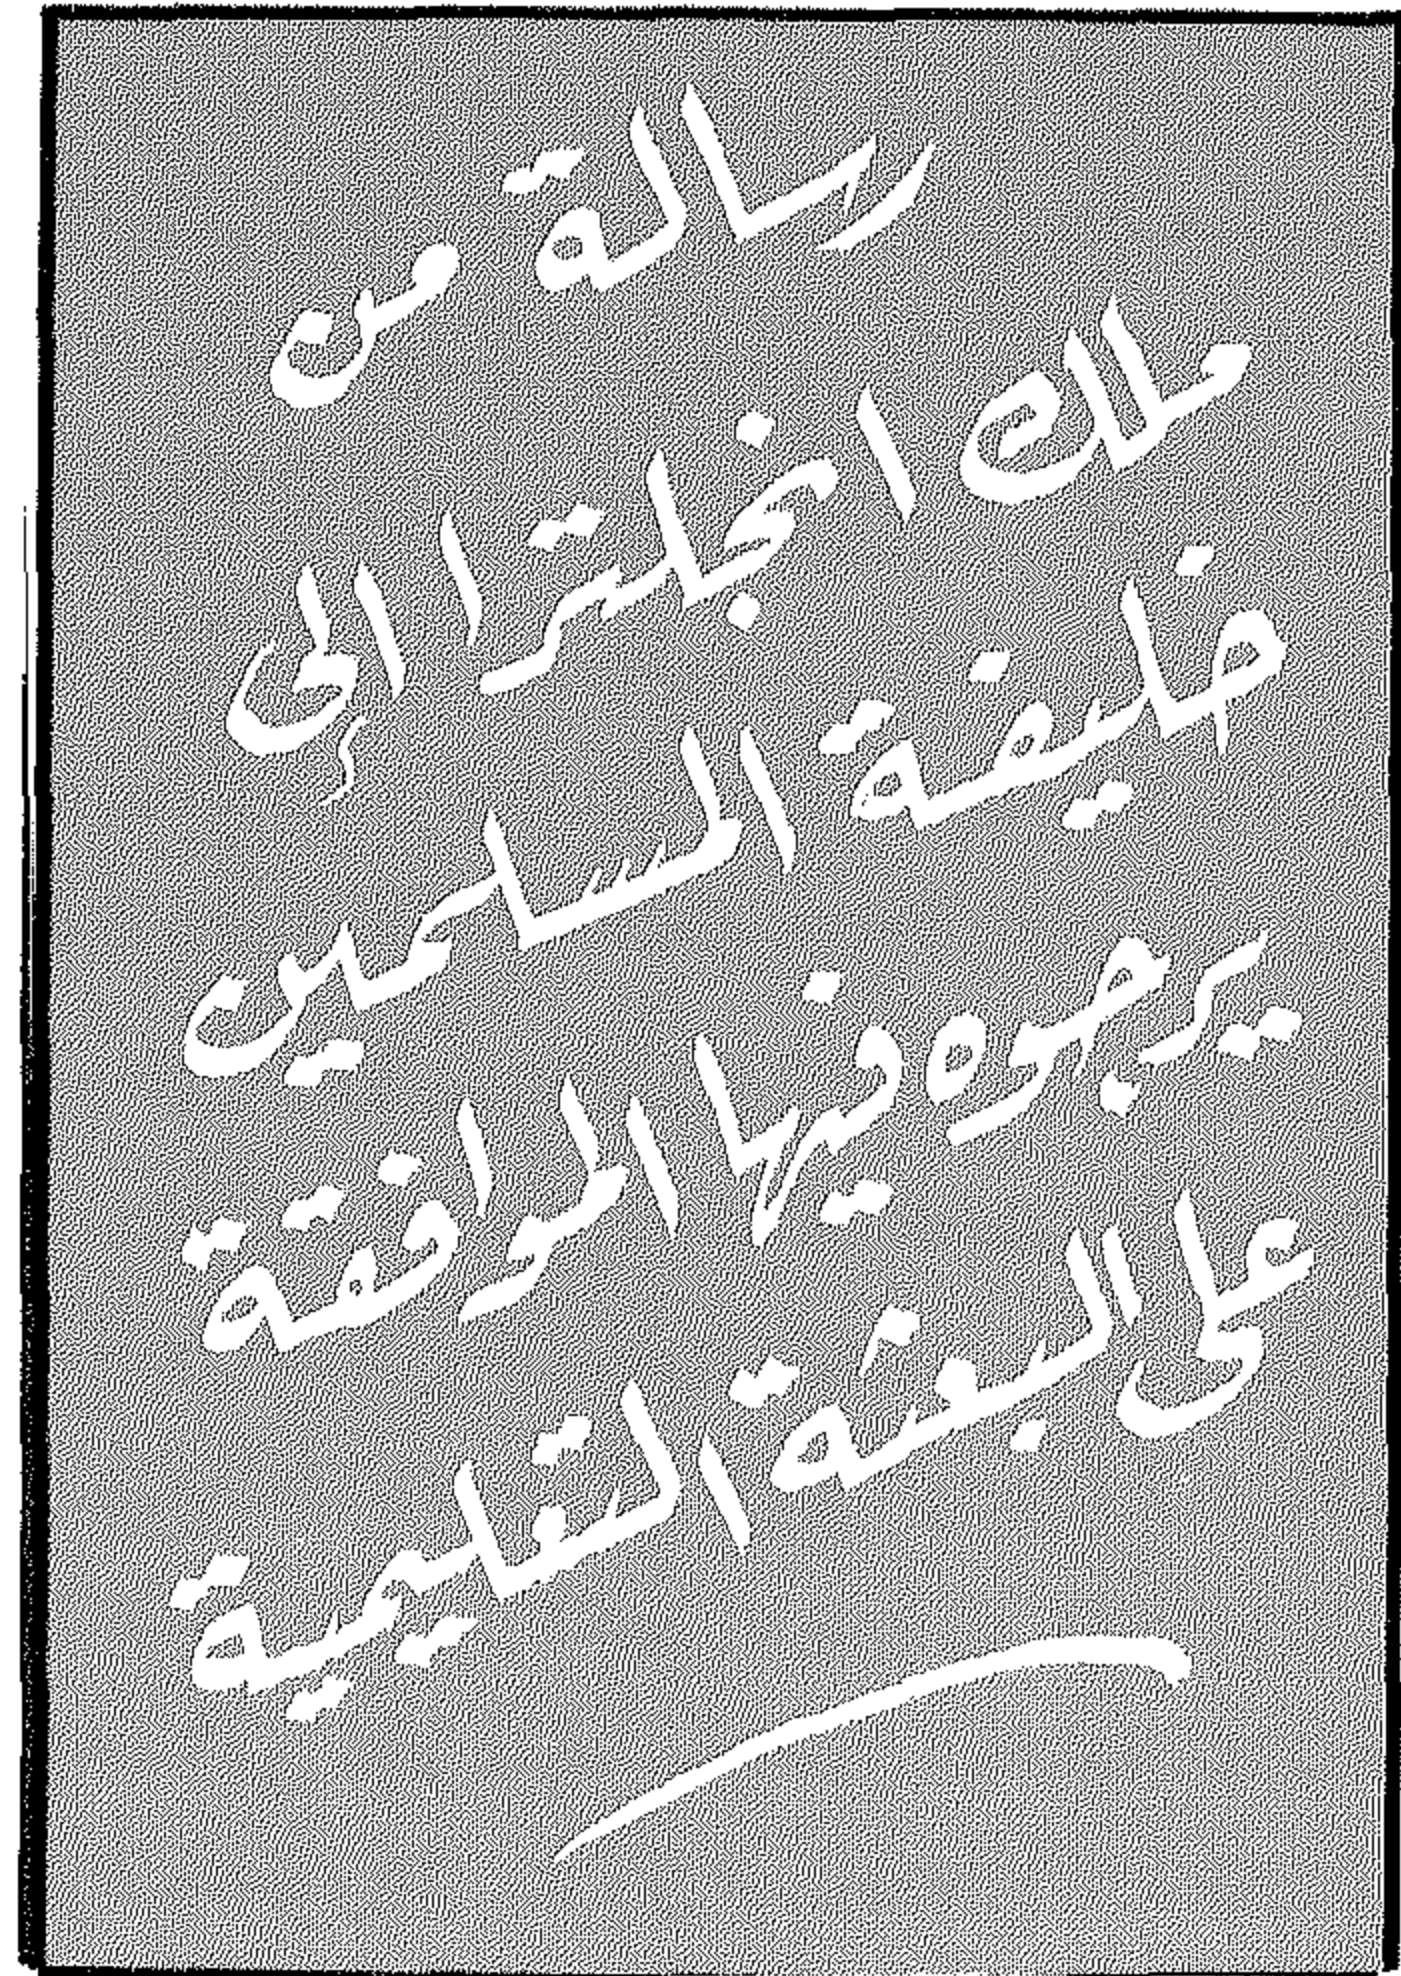 رسالة من
ملك انجلترا إلى
خليفة المسلمين
يرجوه فيها الموافقة
على البعثة التعليمية